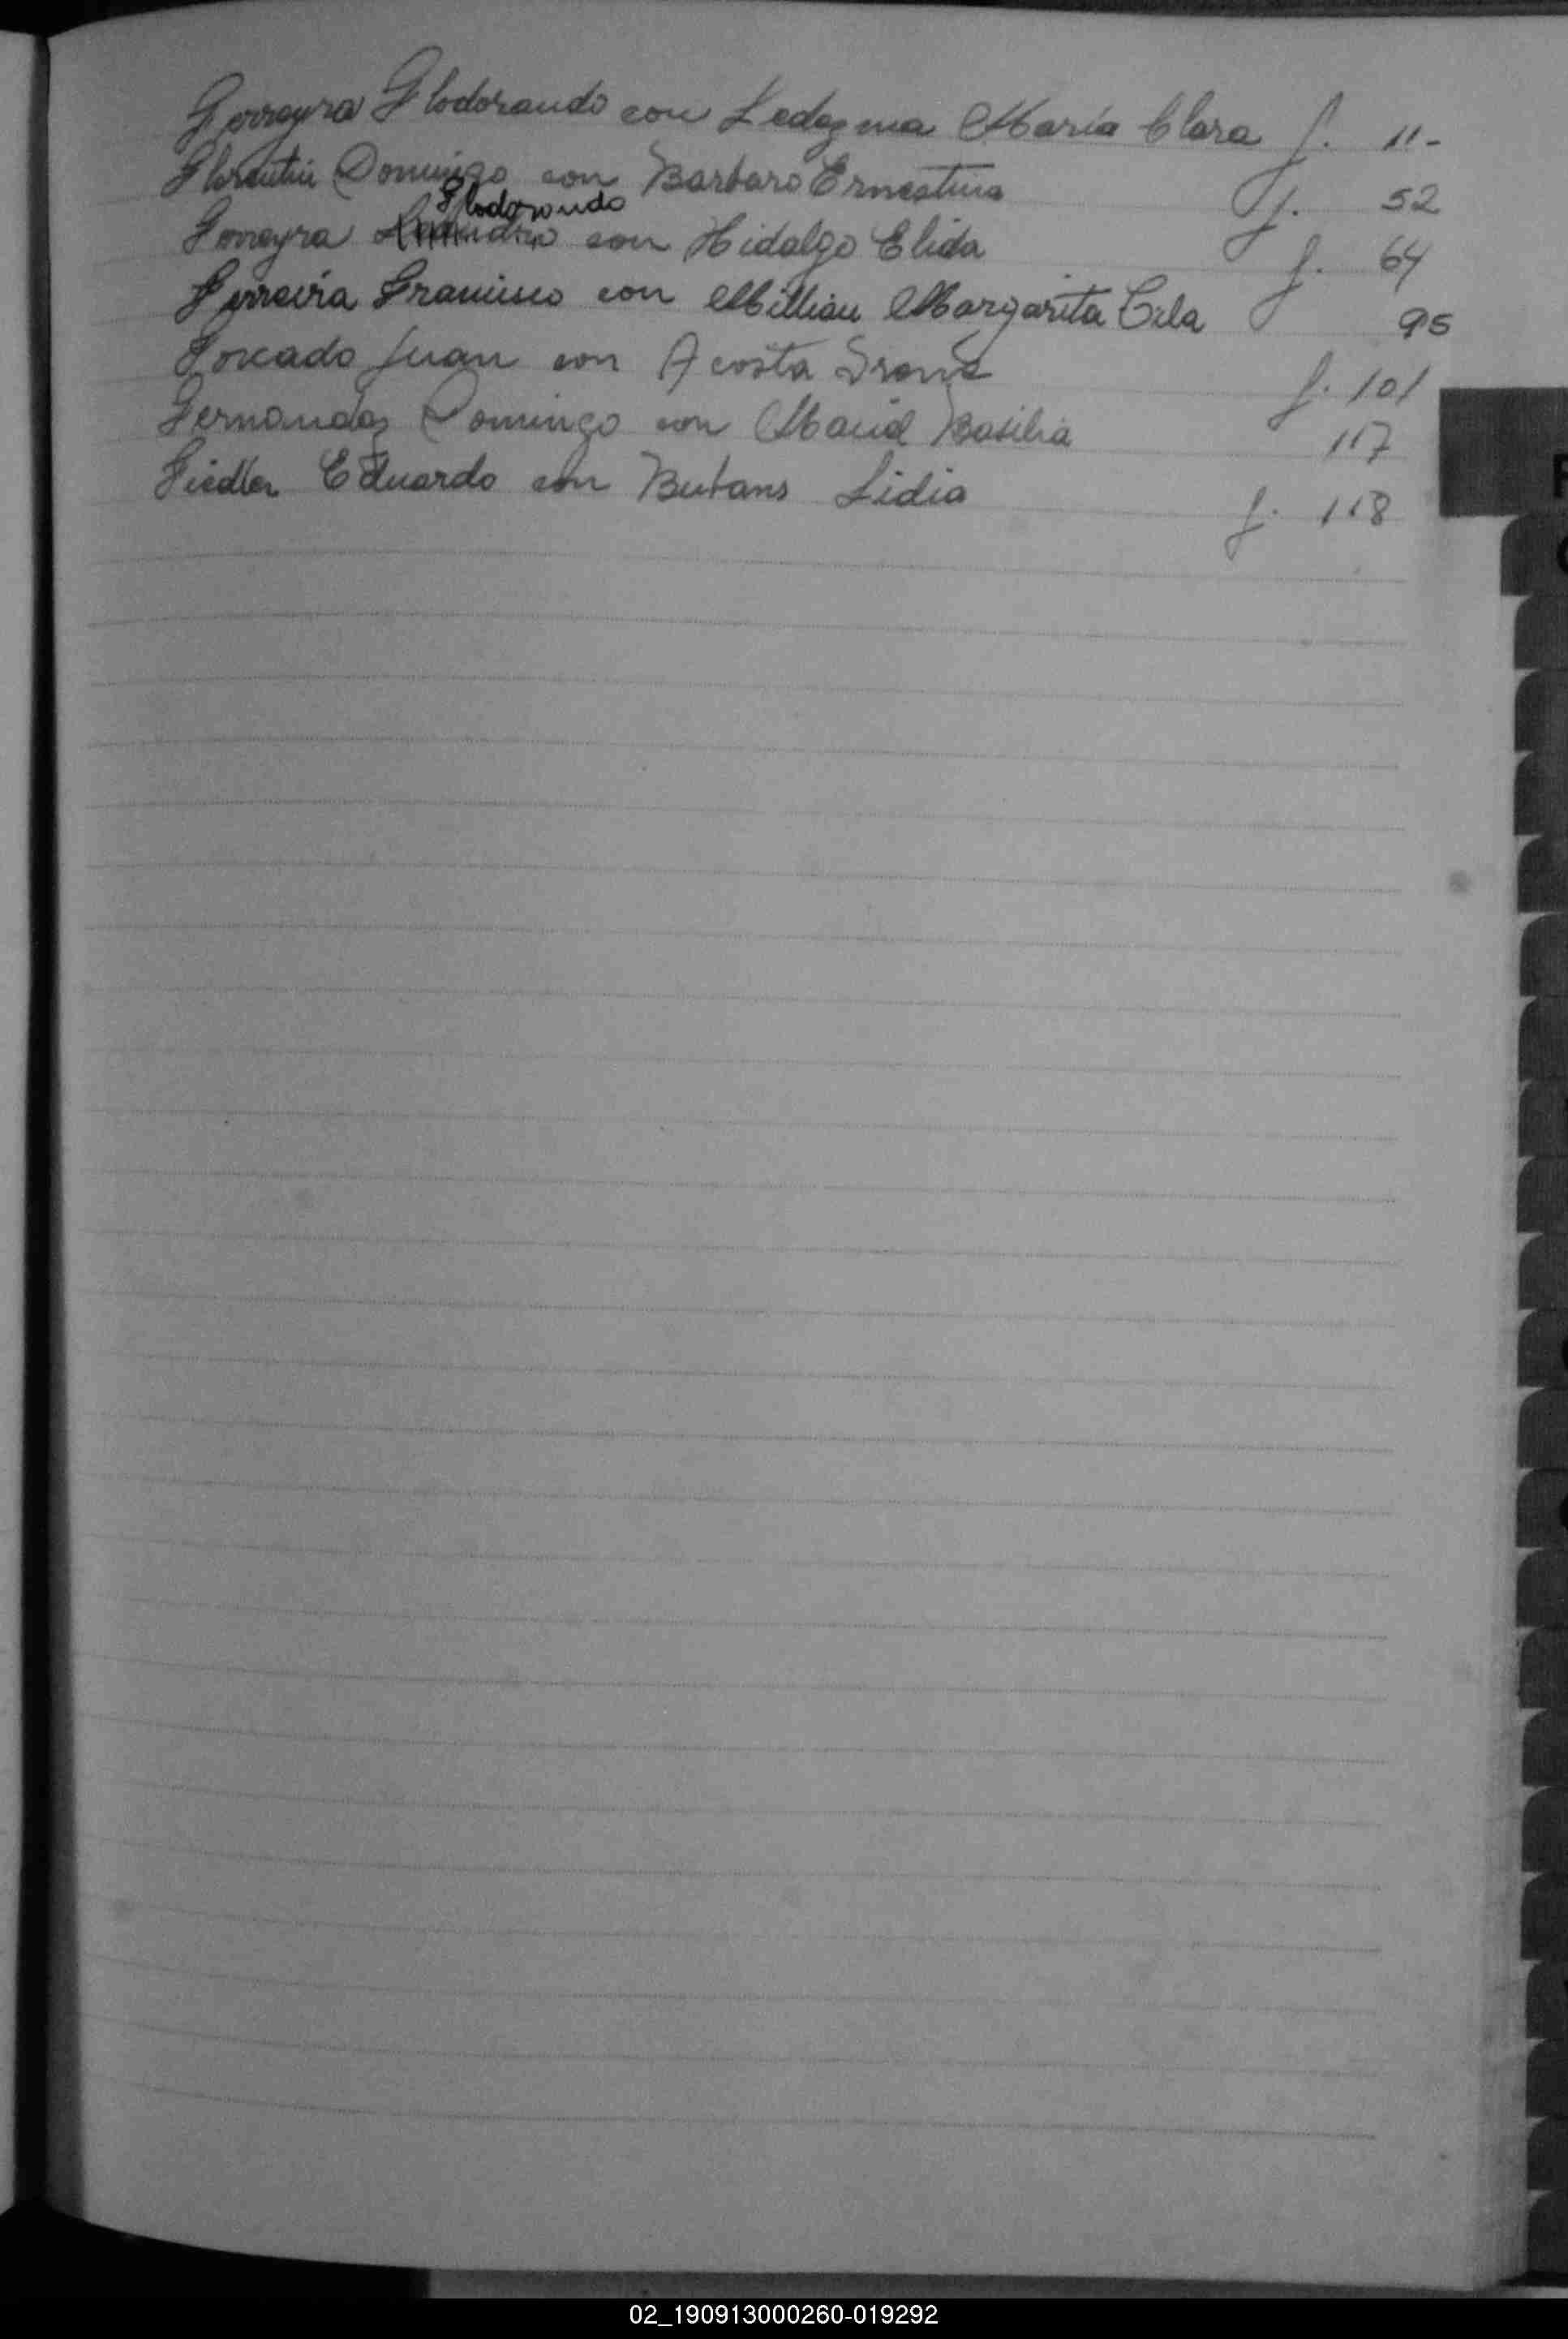 Ferreyra Flodorando con Ledezma María Clara f. 11-
Florentin Domingo con Barbaro Ernestina f. 52
Flodorando
Ferreyra con Hidalgo Elida f. 64
Ferreira Francisco con Millian Margarita Cela 95
Forcado Juan con Acosta Irene f. 101
Fernandez Domingo con Maciel Basilia 117
Fiedler Eduardo con Butans Lidia f. 118
F
02_190913000260-019292